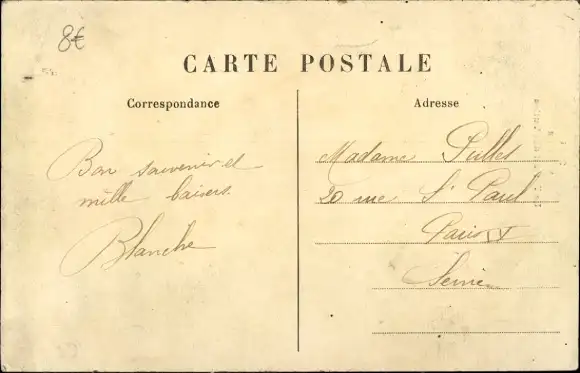 8€
CARTE POSTALE
Correspondance
Adresse
Bon souvenir et
mille baisers
Blanche
Madame
20 rue St Paul
Paris
Seine